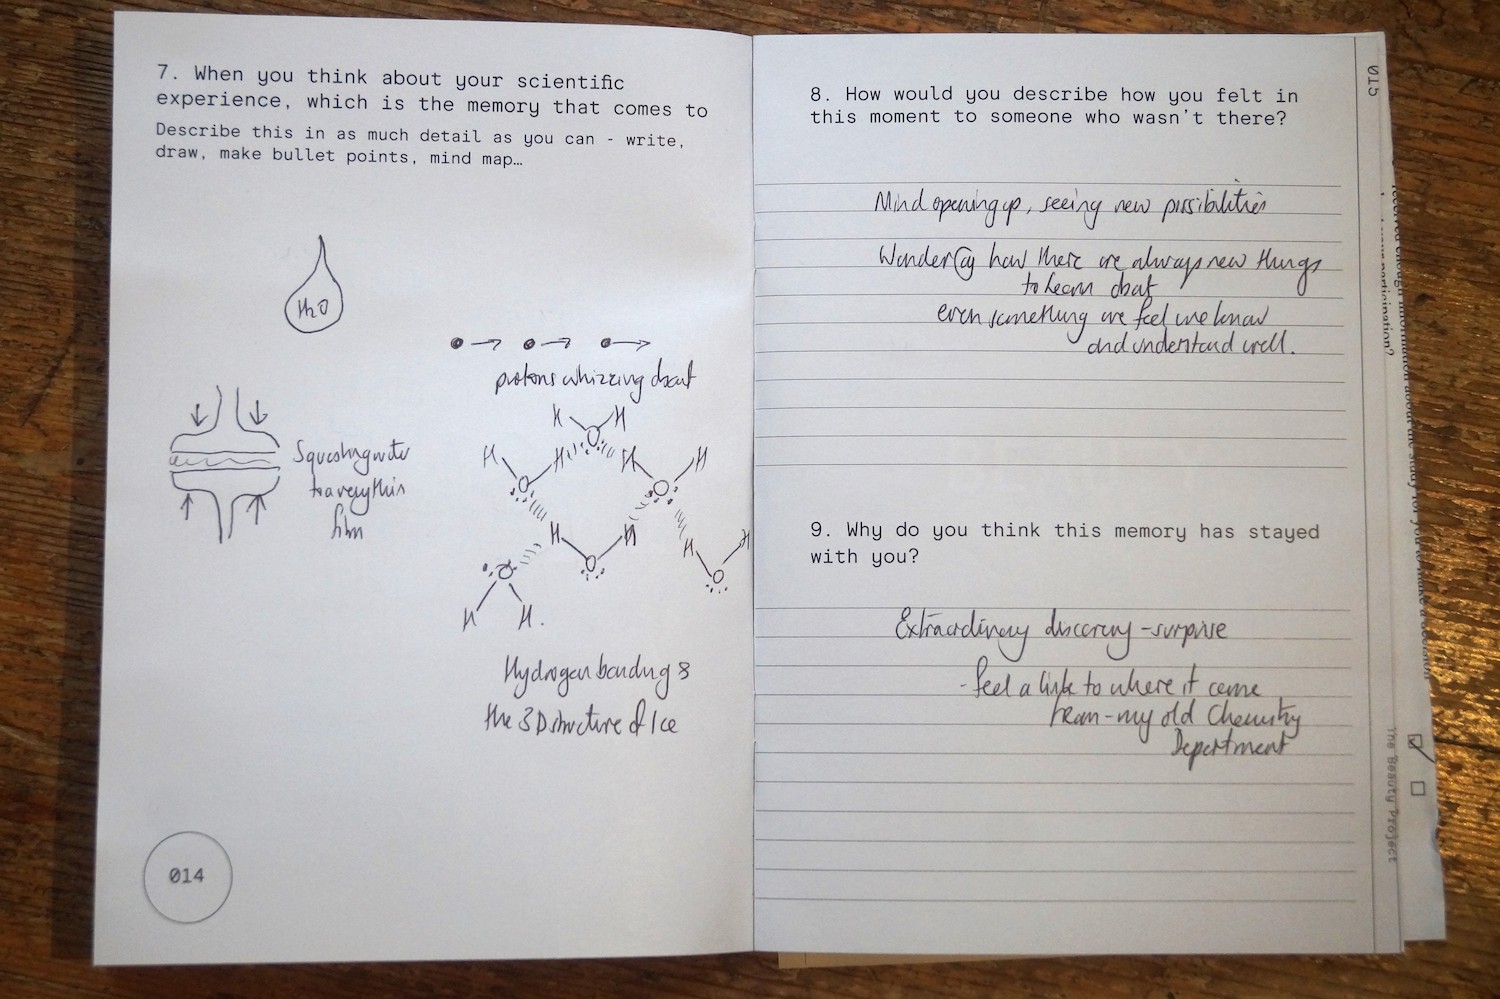 7. When you think about your scientific
experience, which is the memory that comes to
Describe this in as much detail as you can - write,
draw, make bullet points, mind map…
H2O
protons whizzing about
Squashing water
to a very thin
film
H H
H H H H
O O O
H H H H
O O O
H H.
Hydrogen bonding &
the 3D structure of Ice
014
8. How would you describe how you felt in
this moment to someone who wasn't there?
Mind opening up, seeing new possibilities
Wonder @ how there are always new things
to learn about
even something we feel we know
and understand well.
9. Why do you think this memory has stayed
with you?
Extraordinary discovery - surprise
- feel a link to where it came
from - my old Chemistry
Department
015
The Beauty Project
participation?